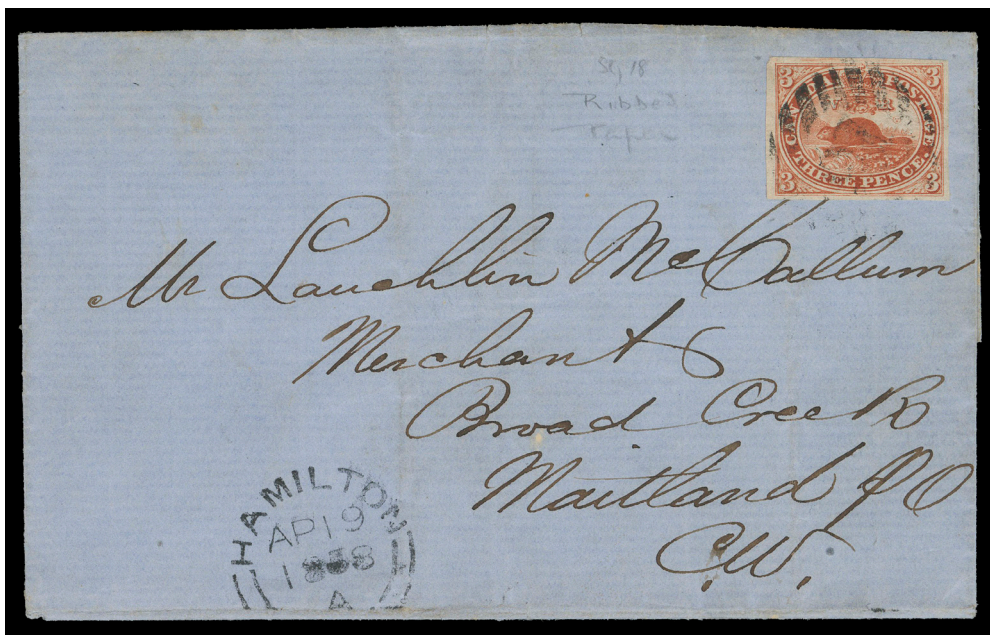 SG 18
Ribbed
Paper
3 3
CANADA POSTAGE
THREE PENCE.
3 3
Mr Lauchlin McCallum
Merchant
Broad Creek
Maitland P O
C.W.
HAMILTON
AP 19
1858
A